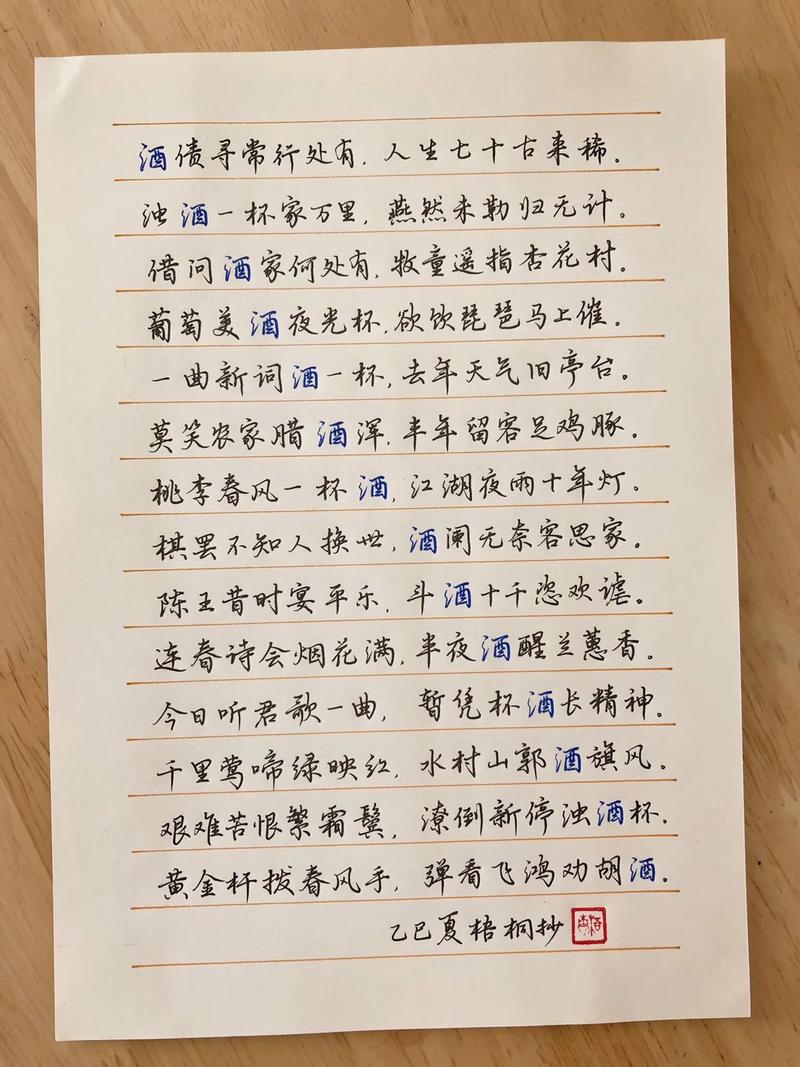 酒债寻常行处有，人生七十古来稀。
浊酒一杯家万里，燕然未勒归无计。
借问酒家何处有，牧童遥指杏花村。
葡萄美酒夜光杯，欲饮琵琶马上催。
一曲新词酒一杯，去年天气旧亭台。
莫笑农家腊酒浑，丰年留客足鸡豚。
桃李春风一杯酒，江湖夜雨十年灯。
棋罢不知人换世，酒阑无奈客思家。
陈王昔时宴平乐，斗酒十千恣欢谑。
连春诗会烟花满，半夜酒醒兰蕙香。
今日听君歌一曲，暂凭杯酒长精神。
千里莺啼绿映红，水村山郭酒旗风。
艰难苦恨繁霜鬓，潦倒新停浊酒杯。
黄金杆拨春风手，弹看飞鸿劝胡酒。
乙巳夏梧桐抄